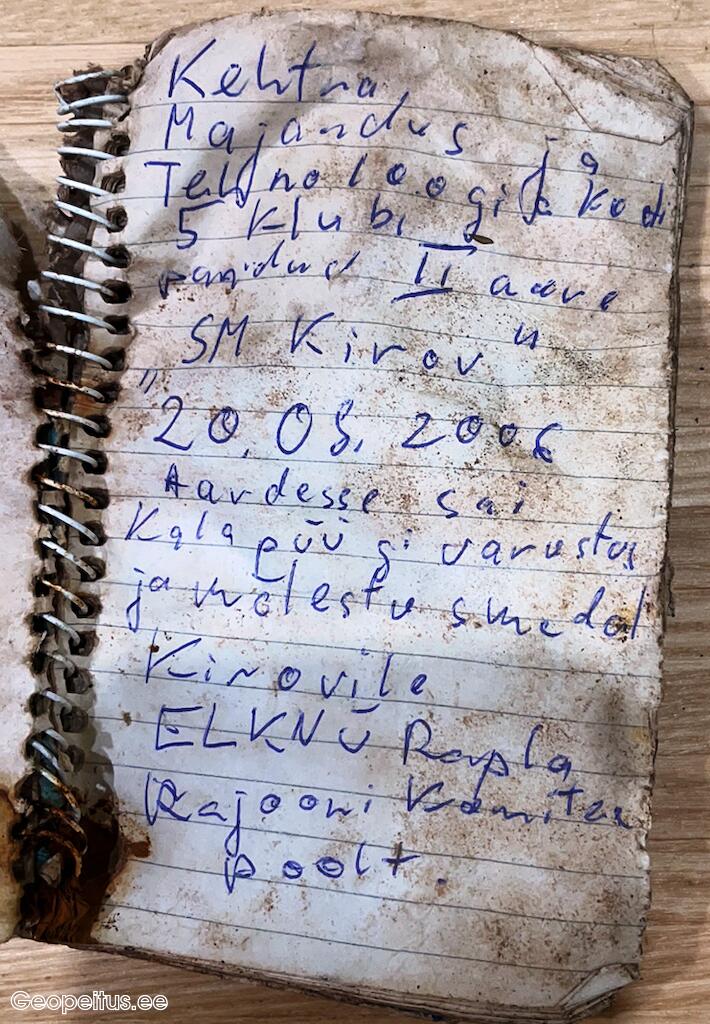 Kehtna,
Majandus ja
Tehnoloogia kooli
5 klubi
II aare
„SM Kirov"
20.08.2006
Aardesse sai
Kalapüügi varustus
ja mälestusmedal
Kirovile
ELKNÜ Rapla
Rajooni Komitee
poolt.
Geopeitus.ee